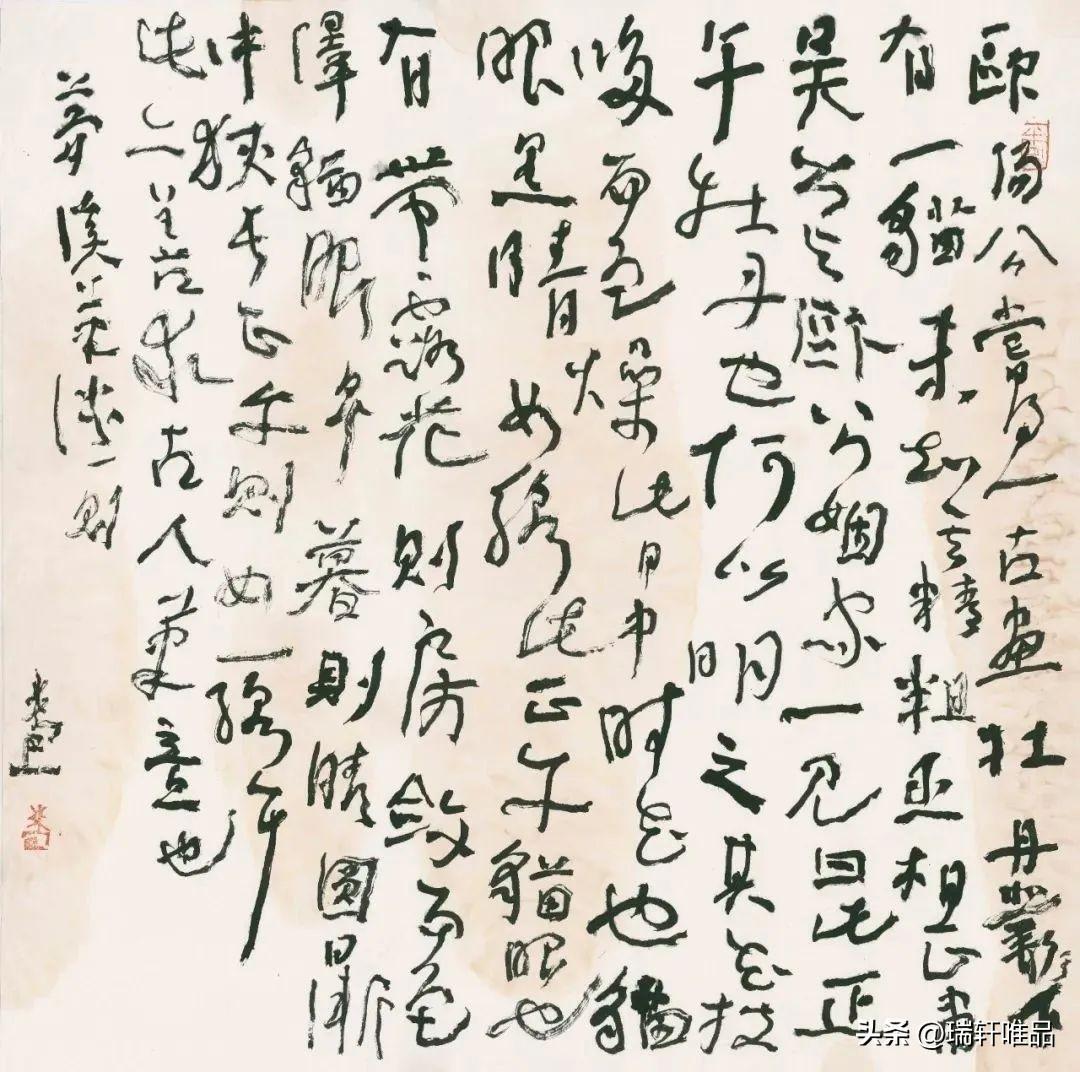 歐陽公嘗得一古畫牡丹叢其下
有一貓未知其精粗丞相正肅
吳公与歐公姻家一見曰此正
午牡丹也何以明之其花披
哆而色燥此日中時花也貓
眼黑睛如綫此正午貓眼也
有帶露花則房斂而色
澤貓眼早暮則睛圓日漸
中狹長正午則如一綫耳
此亦善求古人筆意也
夢溪筆談一則
头条 @瑞轩唯品